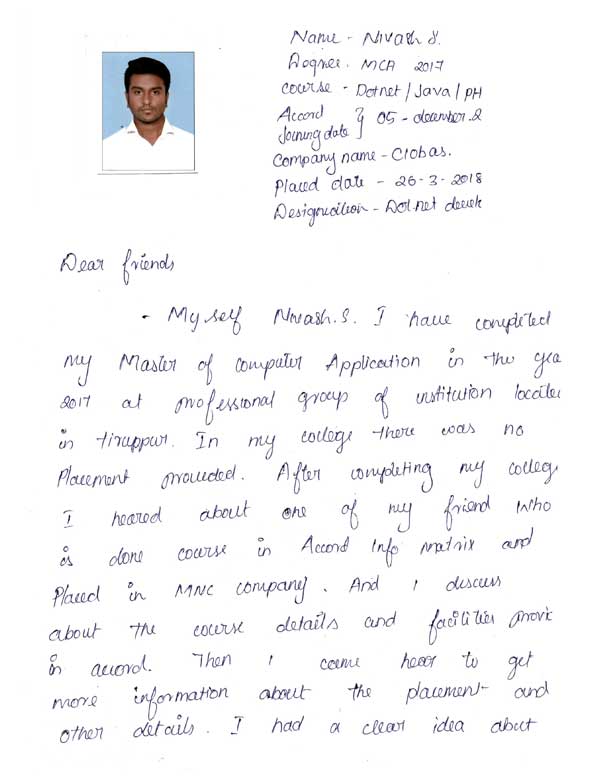 Name - Nivash S.
Degree. MCA 2017
course - Dotnet / Java / PH
Accord
Joining date } 05 - december. 2
Company name - Ciobas.
Placed date - 26-3-2018
Designation - Dot.net
Dear friends,
- My self Nivash. S. I have completed
my Master of computer Application in the yea
2017 at professional group of institution locate
in tiruppur. In my college there was no
Placement provided. After completing my colleg
I heared about one of my friend who
is done course in Accord Info matrix and
Placed in MNC company. And I discuss
about the course details and facilities provi
in accord. Then I came hear to get
more information about the placement and
other details. I had a clear idea about